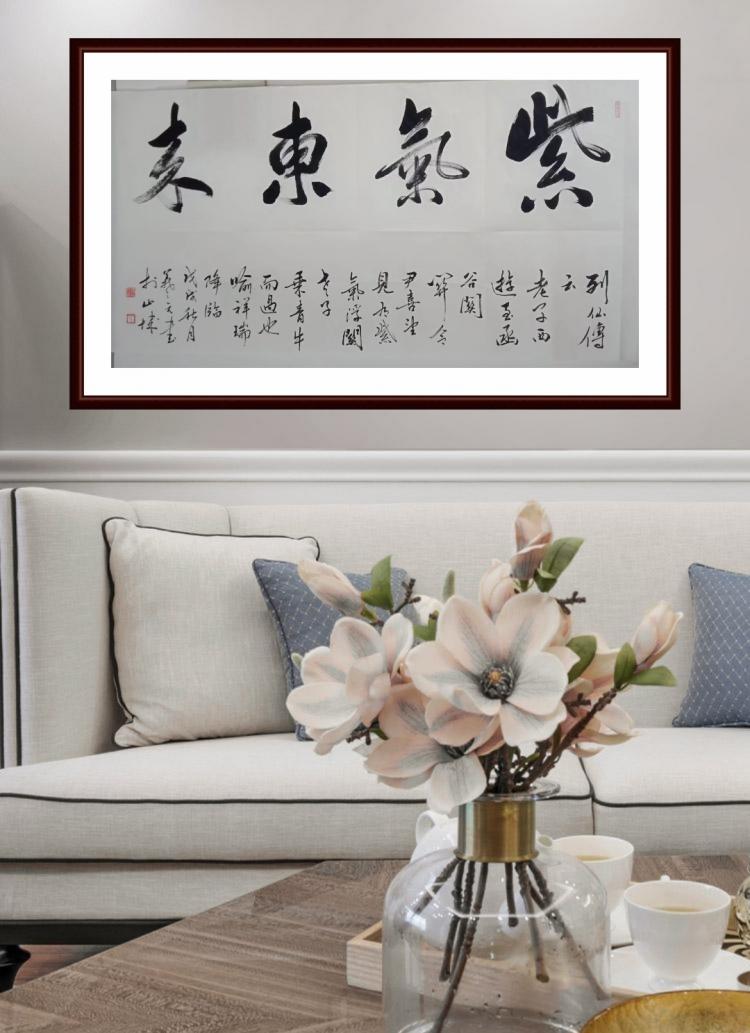 紫氣東来
列仙傳
云
老子西
遊至函
谷關
關令
尹喜望
見有紫
氣浮關
老子
乘青牛
而過也
喻祥瑞
降臨
戊戌秋月
書
於山城